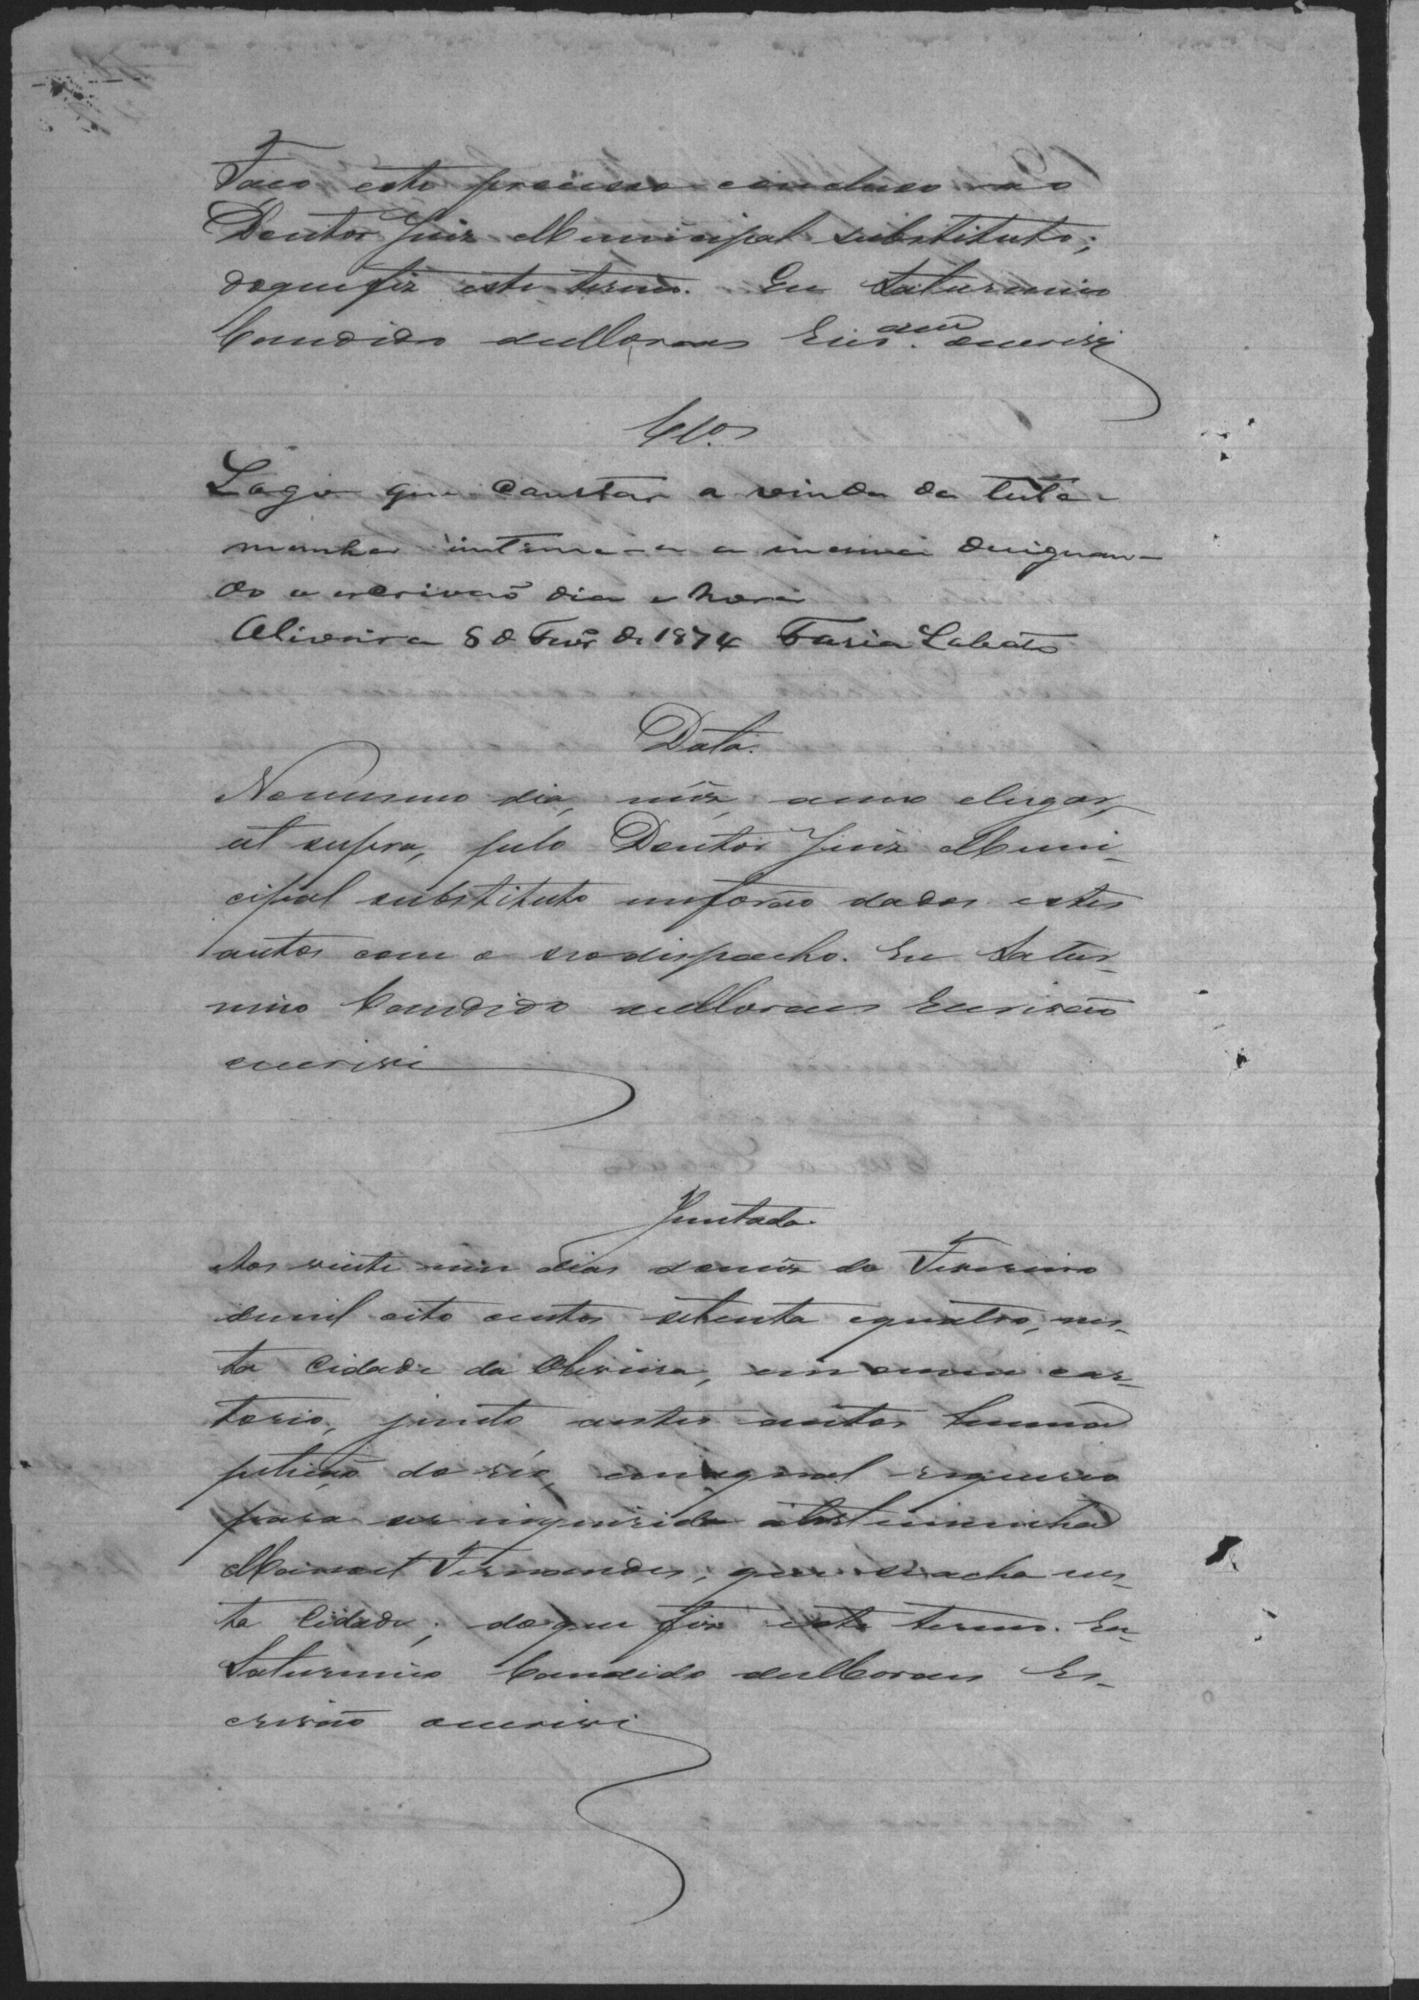 Faço este processo concluso ao
Doutor Juiz Municipal substituto;
do que fiz este termo. Eu Saturnino
Candido de Moraes Escr.am o escrivi
Cl.os
Logo que constar a vinda da teste-
munha intime-se a mesma designan-
do o escrivaõ dia e hora
Oliveira 8 de Fevr.o de 1874 Faria Lobato
Data.
No mesmo dia, mês, anno e lugar,
ut supra, pelo Doutor Juiz Muni-
cipal substituto me forão dados estes
autos com o seo dispacho. Eu Satur-
nino Candido de Moraes Escrivão
o escrivi
Juntada.
Aos vinte um dias do mês de Fevereiro
de mil oito centos setenta e quatro, nes-
ta Cidade da Oliveira, em o meu car-
torio, junto a estes autos huma
petição do réo, em a qual requereo
para ser inquirida a testeminha
Manoel Fernandes, que se acha nes-
ta Cidade; do que fiz este termo. Eu
Saturnino Candido de Moraes Es-
crivão o escrivi